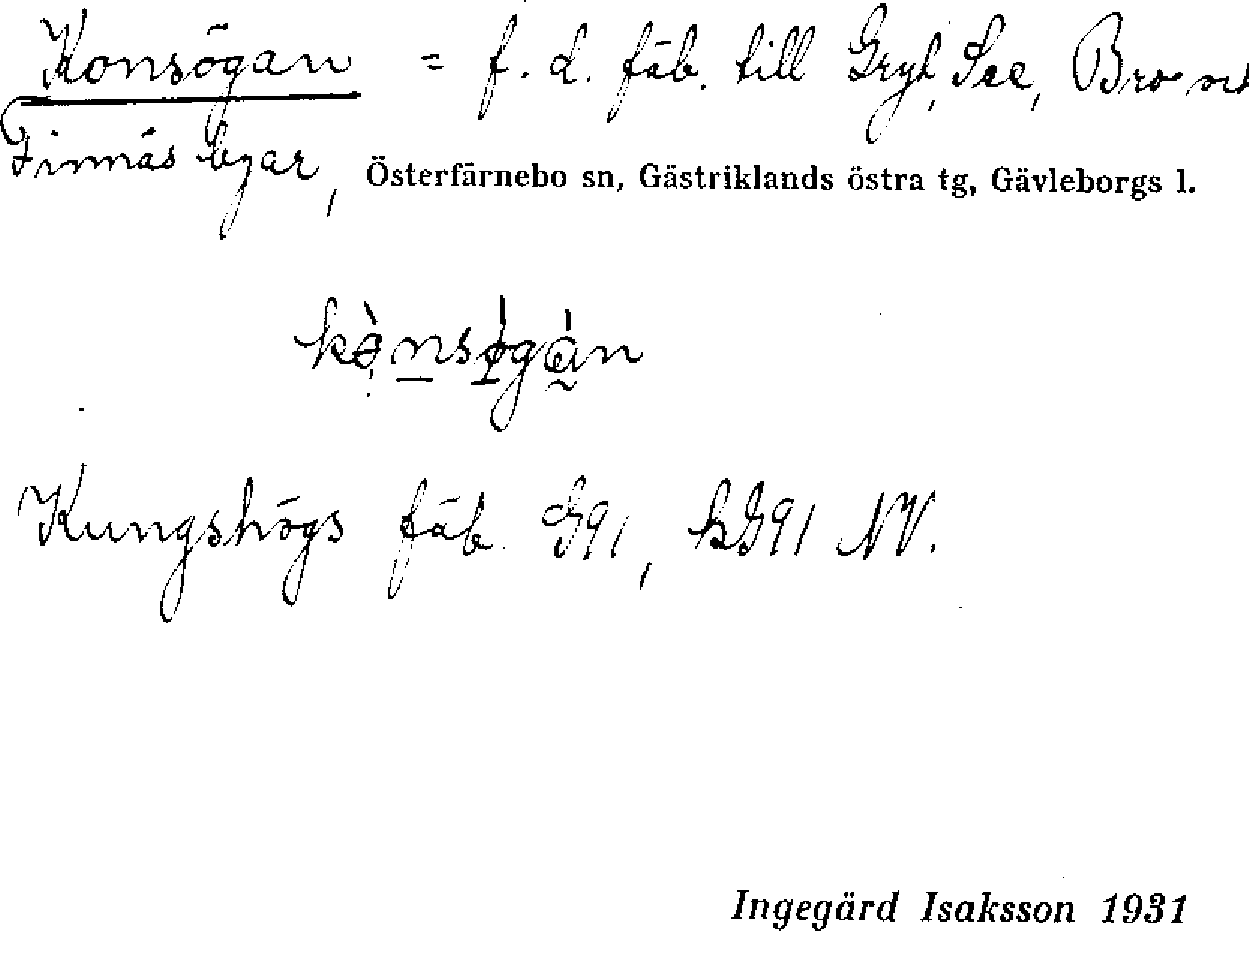 Konsögan = f. d. fäb. till Gryt, See, Bro och
Finnäs byar, Österfärnebo sn, Gästriklands östra tg, Gävleborgs l.
Kungshögs fäb. G91, kG91 NV.
Ingegärd Isaksson 1931